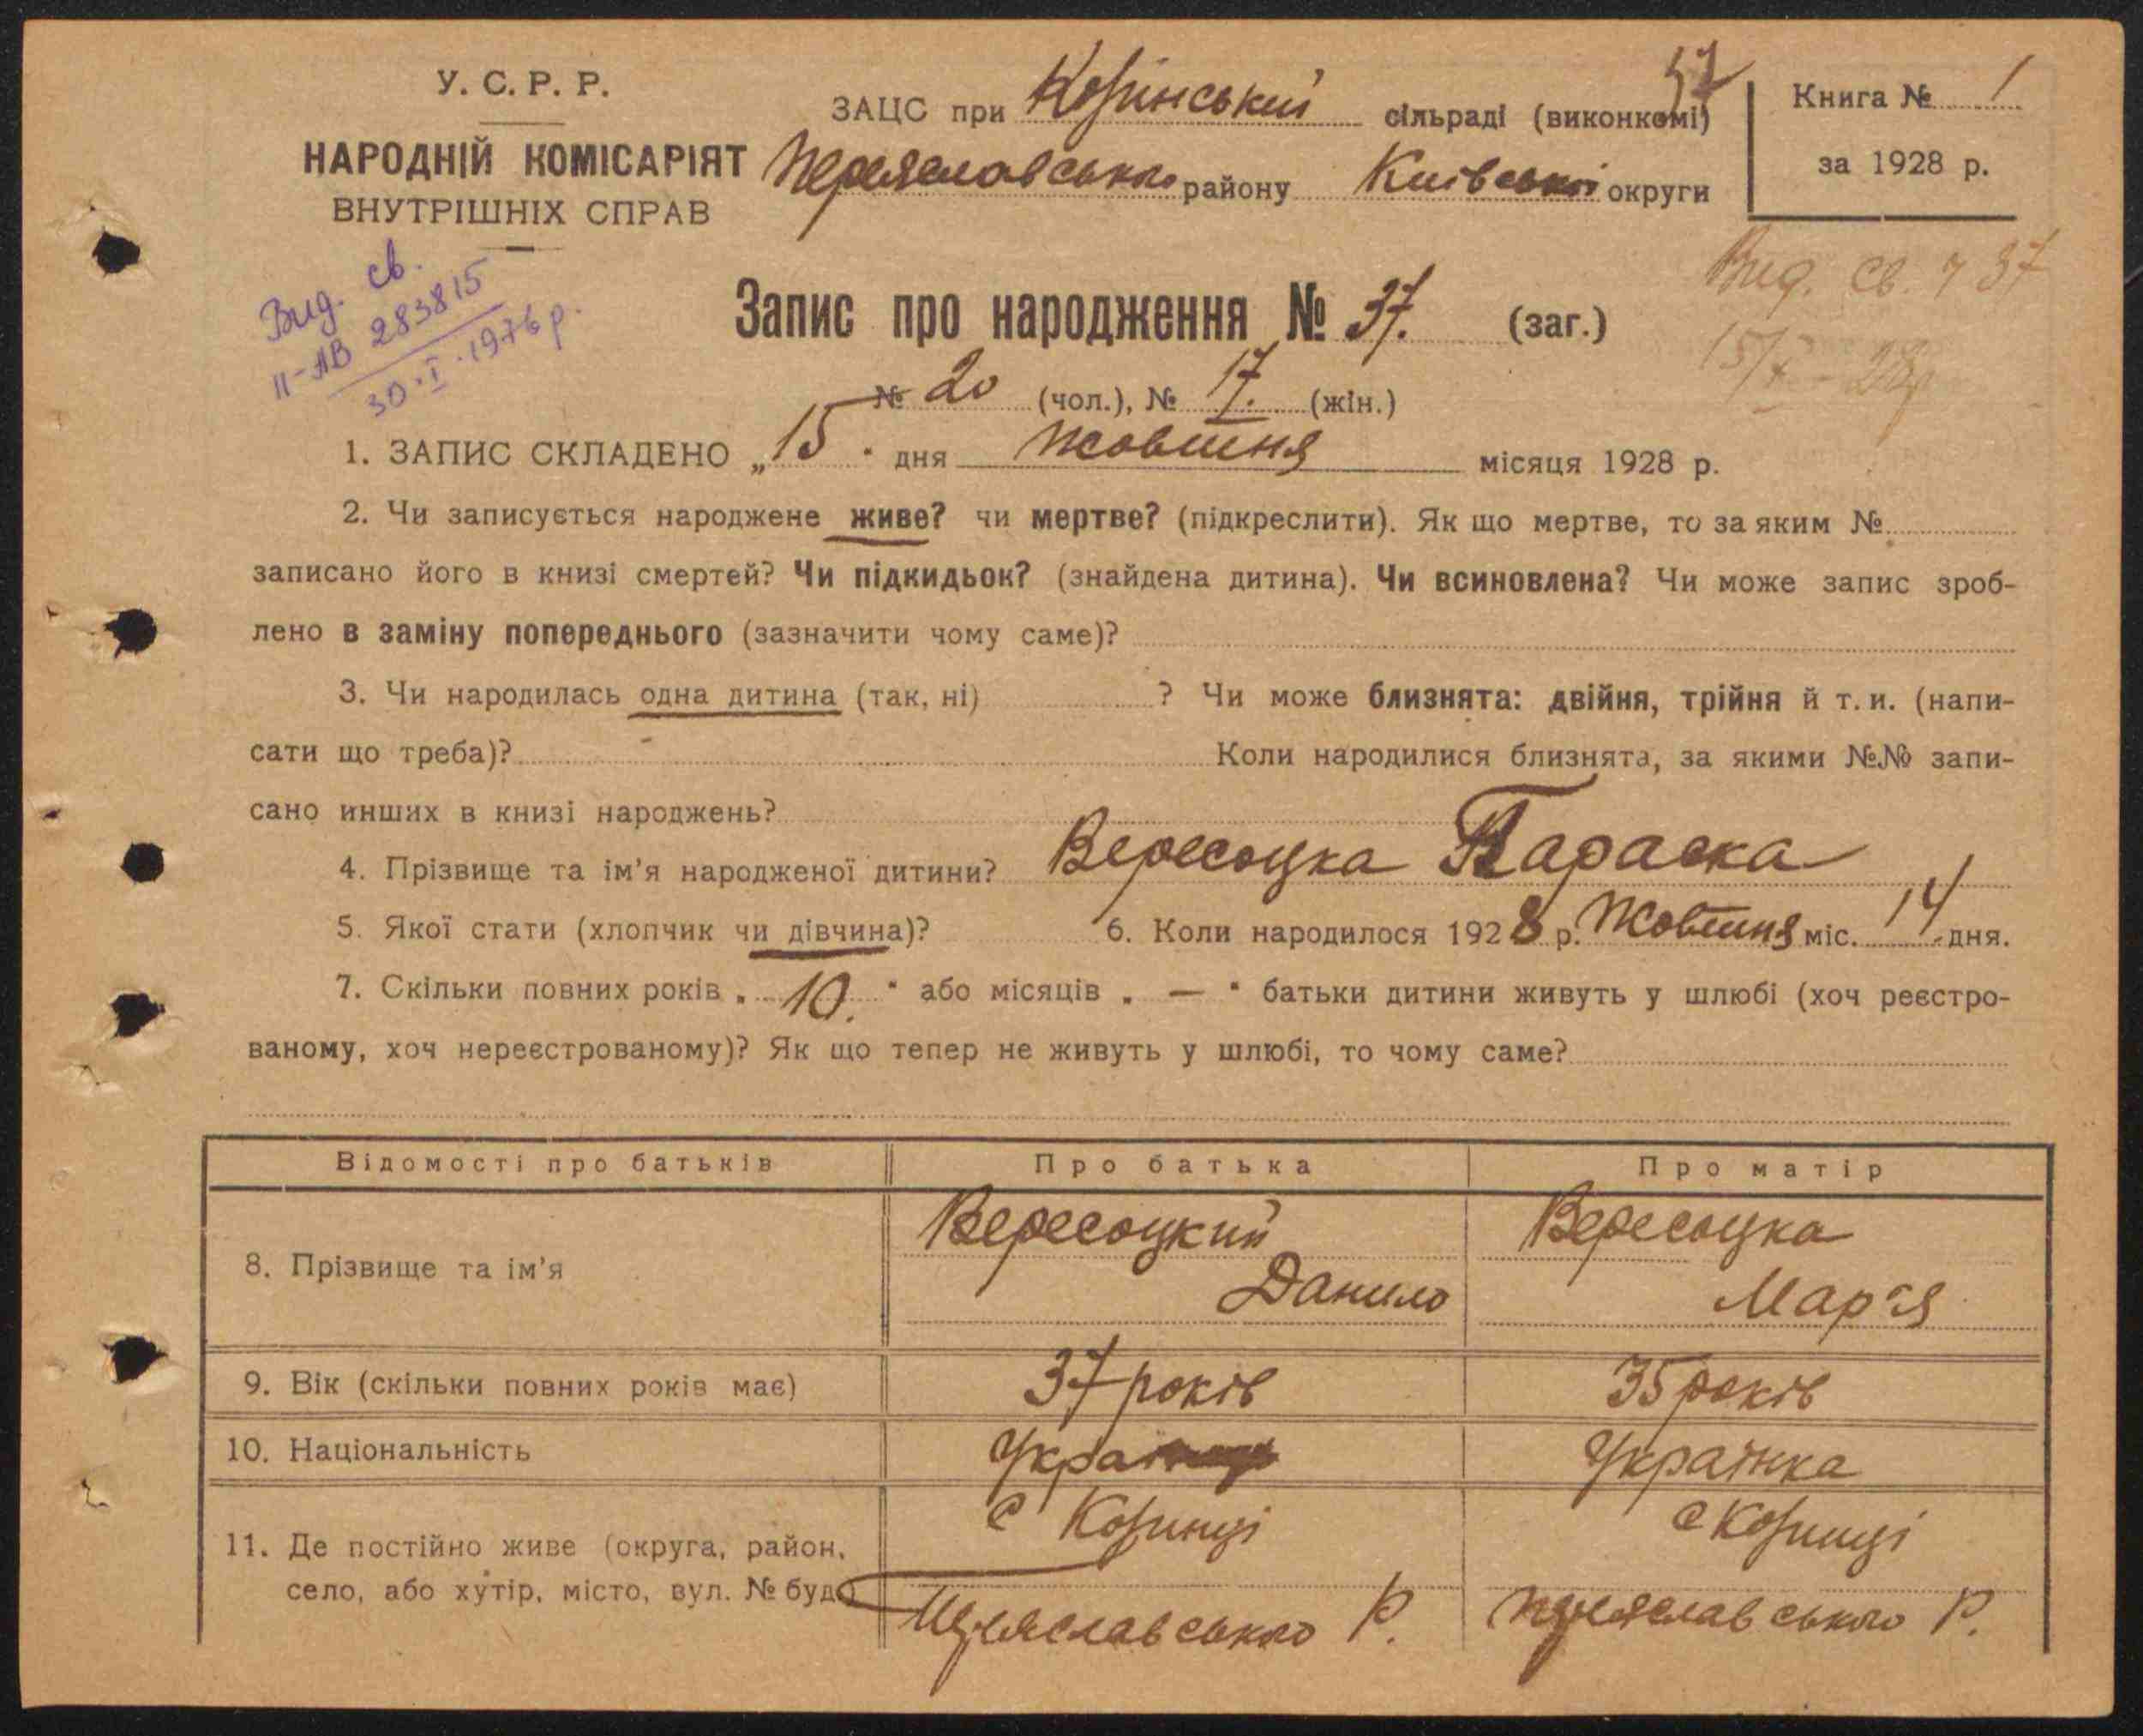 У. С. Р. Р.
НАРОДНІЙ КОМІСАРІЯТ
ВНУТРІШНІХ СПРАВ
ЗАЦС при Корінський сільраді (виконкомі)
Переяславського району Київської округи
Книга № 1
за 1928 р.
Вид. св.
ІІ-АВ 283815
30.І.1976 р.
Вид. св. ч 37
15/X - 28р
Запис про народження № 37. (заг.)
№ 20 (чол.), № 17. (жін.)
1. ЗАПИС СКЛАДЕНО „15" дня жовтня місяця 1928 р.
2. Чи записується народжене живе? чи мертве? (підкреслити). Як що мертве, то за яким №
записано його в книзі смертей? Чи підкидьок? (знайдена дитина). Чи всиновлена? Чи може запис зроб-
лено в заміну попереднього (зазначити чому саме)?
3. Чи народилась одна дитина (так, ні) ? Чи може близнята: двійня, трійня й т. и. (напи-
сати що треба)? Коли народилися близнята, за якими №№ запи-
сано инших в книзі народжень?
4. Прізвище та ім'я народженої дитини? Вересоцка Параска
5. Якої стати (хлопчик чи дівчина)? 6. Коли народилося 1928 р. Жовтня міс. 14 дня.
7. Скільки повних років „ 10. " або місяців „ — " батьки дитини живуть у шлюбі (хоч реєстро-
ваному, хоч нереєстрованому)? Як що тепер не живуть у шлюбі, то чому саме?
Відомості про батьків Про батька Про матір
8. Прізвище та ім'я Вересоцкий Данило Вересоцка Мар'я
9. Вік (скільки повних років має) 37 років 35 років
10. Національність Українка
11. Де постійно живе (округа, район,
село, або хутір, місто, вул. № буд.)
с Коринці
Переяславського Р.
с Коринці
Переяславського Р.